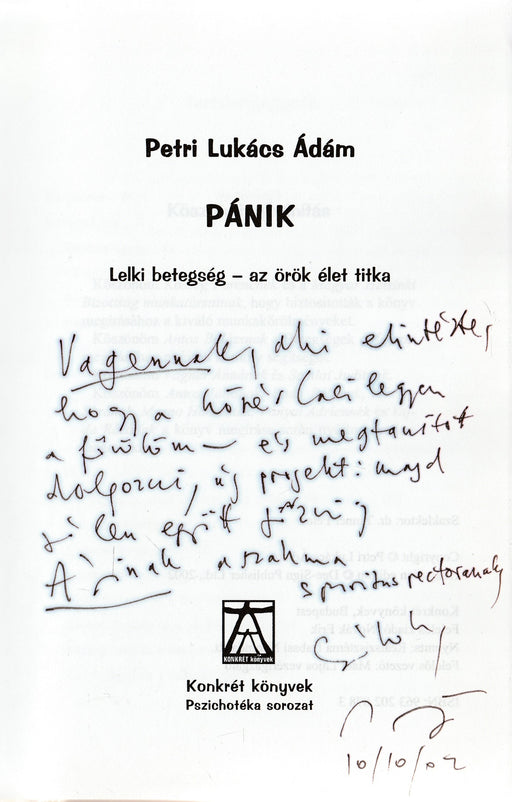 Petri Lukács Ádám
PÁNIK
Lelki betegség – az örök élet titka
Vagennak, aki elintézte,
hogy a
a főnököm – és megtanított
dolgozni, új projekt: majd
jólen együtt
Ájinak a szakma
spiritus rectorának
KONKRÉT könyvek
Csókol,
Konkrét könyvek
Pszichotéka sorozat
10/10/02